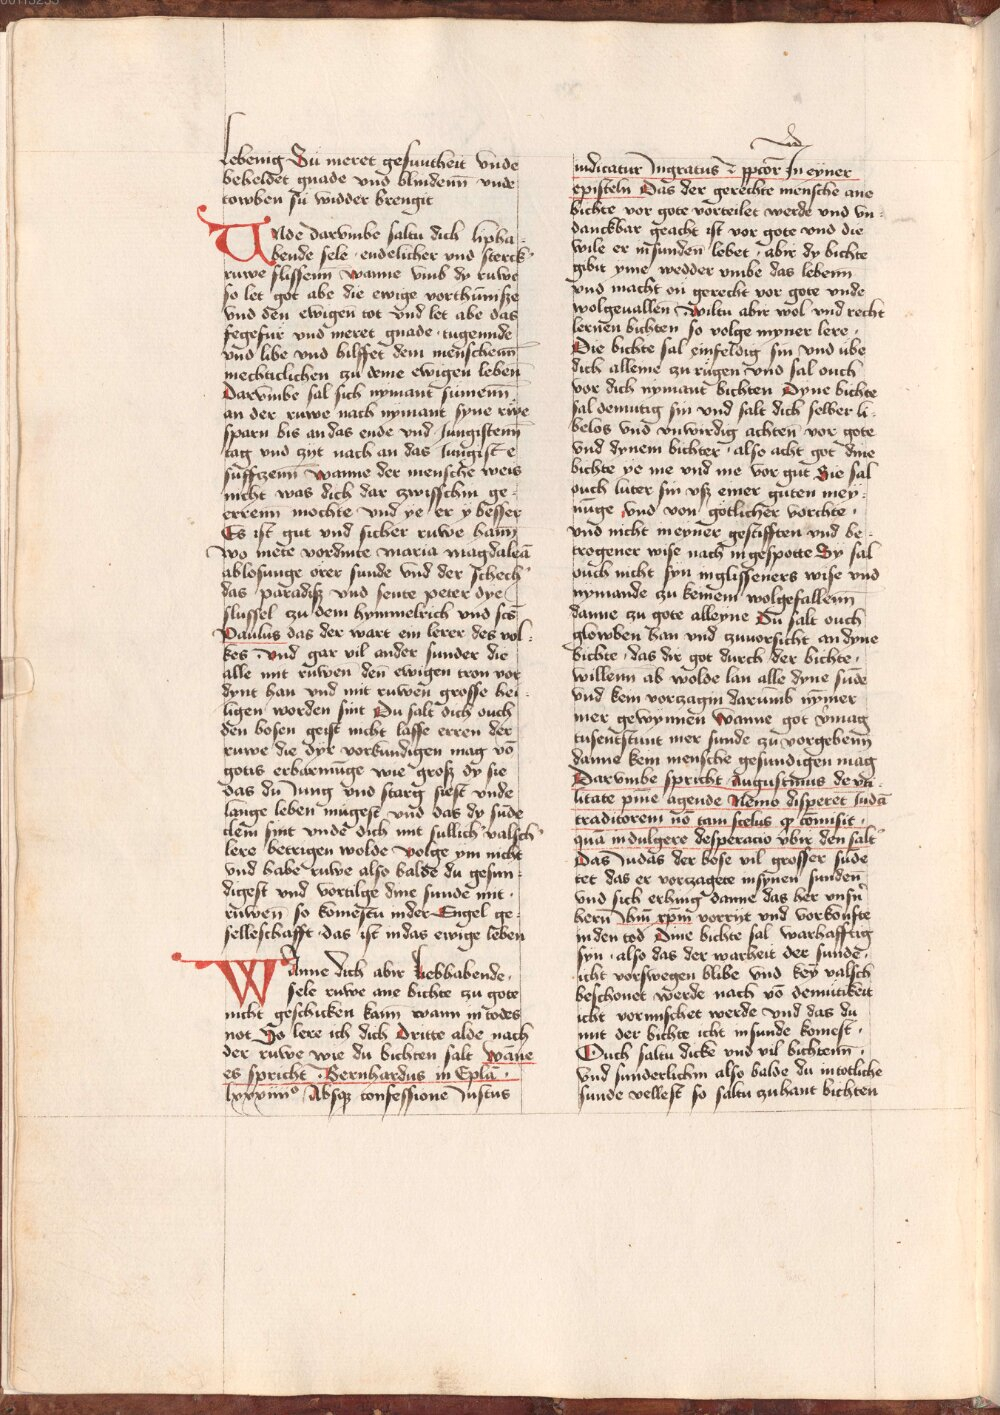 lebenig Su meret gesuntheit vnde
beheldet gnade vnd blindenn vnde
towben su widder brengit
Unde darvmbe saltu dich lipha-
bende sele endelicher vnd sterck
ruwe flissenn wanne vmb dy ruwe
so let got abe die ewige vorthumsze
vnd den ewigen tot vnd let abe das
fegefur vnd meret gnade tugemde
vnd libe vnd hilffet dem menschenn
mechticlichen zu deme ewigen leben
Darvmbe sal sich nymant sumenn
an der ruwe nach nymant syne rwe
sparn bis an das ende vnd Jungistenn
tag vnd zyt nach an das Jungist e
sufftzenn wanne der mensche weis
nicht was dich dar zwisschin ge-
errenn mochte vnd ye er y besser
Es ist gut vnd sicher ruwe hann
wo mete vordinte maria magdalea
ablosunge orer sunde vnd der schech
das paradisz vnd sente peter dye
slussel zu dem hymmelrich vnd scs
Paulus das der wart ein lerer des vol-
kes vnd gar vil ander sunder die
alle mit ruwen den ewigen tron vor
dynt han vnd mit ruwen grosse hei-
ligen worden sint Du salt dich ouch
den bosen geist nicht lasse erren der
ruwe die dyr vorkundigen mag vo
gotis erbarmuge wie grosz dy sie
das du Jung vnd starg siest vnde
lange leben mugest vnd das dy sude
clein sint vnde dich mit sullich valsch
lere betrigen wolde volge ym nicht
vnd habe ruwe also balde du gesun-
digest vnd vortilge dine sunde mit
ruwen so komestu in der Engel ge-
selleschafft das ist in das ewige leben
Wanne dich abir liebhabende
sele ruwe ane bichte zu gote
nicht geschicken kann wann in todes
not So lere ich dich Dritte alde nach
der ruwe wie du bichten salt wane
es spricht Bernhardus in Epla
lxxxiiiio Absqz confessione Justus
iudicatur Ingratus z ppcor In eyner
episteln Das der gerechte mensche ane
bichte vor gote vorteilet werde vnd vn-
danckbar geacht ist vor gote vnd die
wile er in sunden lebet abir dy bichte
gibit yme wedder vmbe das lebenn
vnd macht on gerecht vor gote vnde
wolgeuallen wiltu abir wol vnd recht
lernen bichten so volge myner lere
Die bichte sal einfeldig sin vnd ube
dich alleine zu rugen vnd sal ouch
vor dich nymant bichten Dyne bichte
sal demutig sin vnd salt dich selber li-
belos vnd vnwirdig achten vor gote
vnd dynem bichter also acht got dine
bichte ye me vnd me vor gut Sie sal
ouch luter sin vsz einer guten mey-
nuge vnd von gotlicher vorchte
vnd nicht meyner gestifften vnd be-
trogener wise nach in gespotte Sy sal
ouch nicht syn in glisseners wise vnd
nymande zu keinem wolgefallenn
danne zu gote alleyne Du salt ouch
glowben han vnd zuvorsicht an dyne
bichte das dir got durch der bichte
willenn ab wolde lan alle dyne sude
vnd kein vorzagin darumb nymer
mer gewynnen wanne got vmag
tusentstunt mer sunde zu vorgebenn
danne kein mensche gesundigen mag
Darvmbe spricht Augustinus de vti-
litate pnie agende Nemo disperet Juda
traditorem no tam scelus qd comisit
qua in dulgere desperacio vbir den salt
Das Judas der bose vil grosser sude
tet das er vorzagete in synen sunden
vnd sich erhing danne das her vnsn
hern Ihm xpm vorriit vnd vorkoufte
in den tod Dine bichte sal warhafftig
syn also das der warheit der sunde
icht vorswegen blibe vnd key valsch
beschonet werde nach vo demutikeit
icht vormischet werde vnd das du
mit der bichte icht in sunde komest
Ouch saltu dicke vnd vil bichtenn
vnd sunderlichin also balde du in totliche
sunde vellest so saltu zu hant bichten